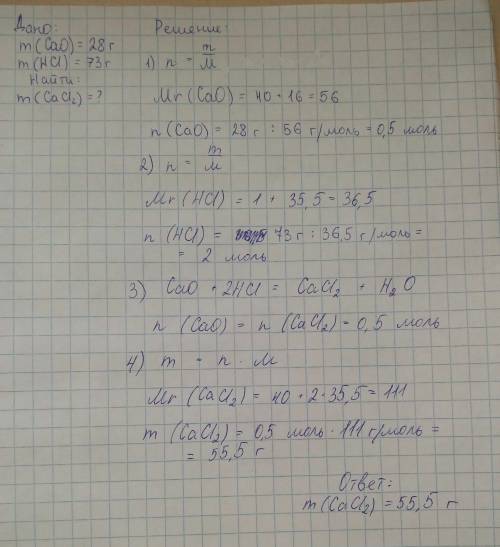 Дано:
m (CaO) = 28 г
m (HCl) = 73 г
Найти:
m (CaCl₂) = ?
Решение:
1) n = m/M
Mr (CaO) = 40 + 16 = 56
n (CaO) = 28 г : 56 г/моль = 0,5 моль
2) n = m/M
Mr (HCl) = 1 + 35,5 = 36,5
n (HCl) = 73 г : 36,5 г/моль =
= 2 моль
3) CaO + 2HCl = CaCl₂ + H₂O
n (CaO) = n (CaCl₂) = 0,5 моль
4) m = n · M
Mr (CaCl₂) = 40 + 2 · 35,5 = 111
m (CaCl₂) = 0,5 моль · 111 г/моль =
= 55,5 г
Ответ:
m (CaCl₂) = 55,5 г